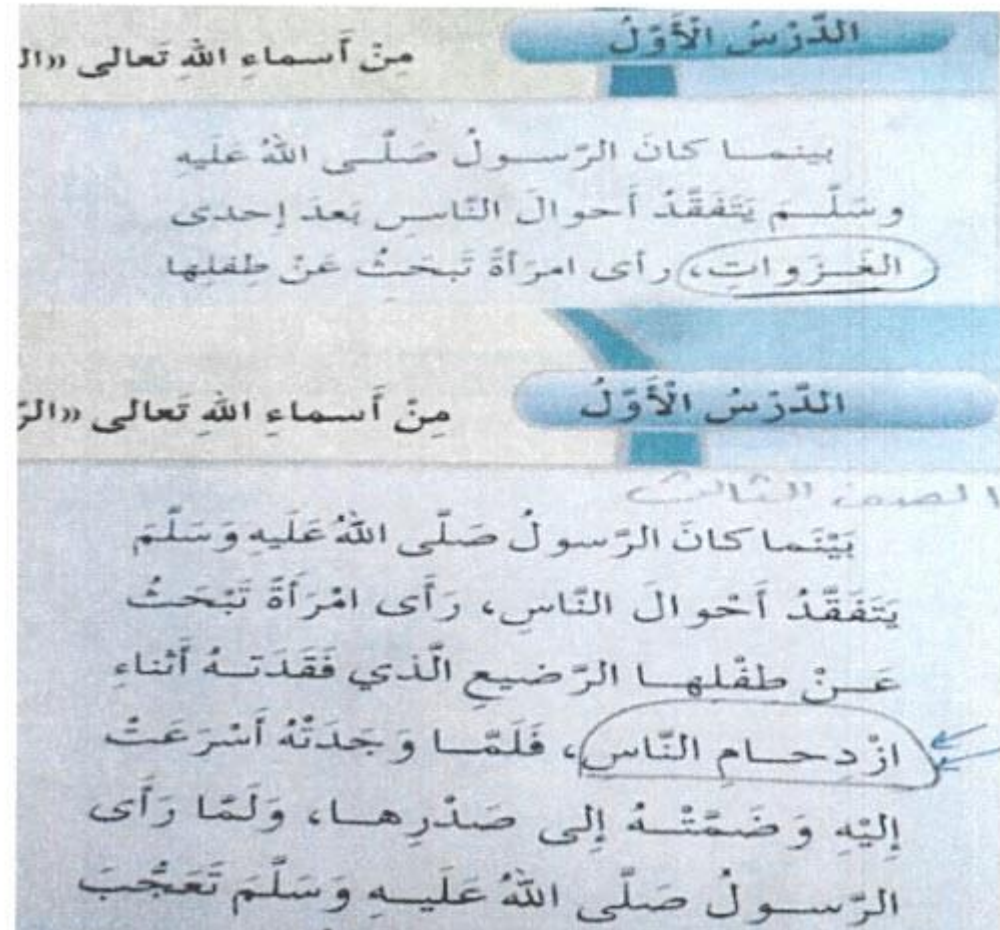 الدَّرْسُ الْأَوَّلُ
مِنْ أَسماءِ اللهِ تَعالى «ال
بينمـا كانَ الرّسـولُ صَلّـى اللهُ عَليهِ
وسَلّـمَ يَتَفَقَّدُ أَحوالَ النّاسِ بَعدَ إحدى
الغَـزَواتِ، رأى امرَأةً تَبحَثُ عَنْ طِفلِها
الدَّرْسُ الْأَوَّلُ
مِنْ أَسماءِ اللهِ تَعالى «الرّ
الصف الثالث
بَيْنَما كانَ الرَّسولُ صَلَّى اللهُ عَلَيهِ وَسَلَّمَ
يَتَفَقَّدُ أَحْوالَ النَّاسِ، رَأَى امْرَأَةً تَبْحَثُ
عَـنْ طِفْلِهـا الرَّضيعِ الَّذي فَقَدَتـهُ أَثْناءِ
ازْدِحـامِ النَّاسِ، فَلَمَّـا وَجَدَتْهُ أَسْرَعَتْ
إِلَيْهِ وَضَمَّتْـهُ إِلى صَدْرِهـا، وَلَمَّا رَأَى
الرَّسـولُ صَلَّى اللهُ عَلَيـهِ وَسَلَّمَ تَعَجُّبَ